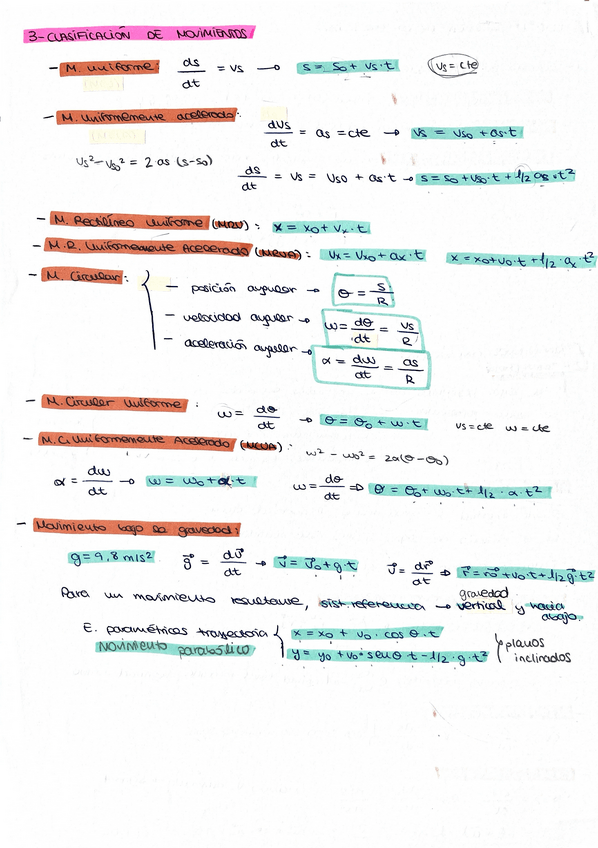 3-CLASIFICACIÓN DE MOVIMIENTOS.
- M. uniforme: ds/dt = vs → s = s0 + vs·t (vs = cte)
- M. Uniformemente acelerado:
dvs/dt = as = cte → vs = vs0 + as·t
vs² - vs0² = 2·as (s-s0)
ds/dt = vs = vs0 + as·t → s = s0 + vs0·t + 1/2 as·t²
- M. Rectilíneo Uniforme (MRU): x = x0 + vx·t
- M.R. Uniformemente Acelerado (MRUA): vx = vx0 + ax·t x = x0 + v0·t + 1/2·ax·t²
- M. Circular:
- posición angular → θ = s/R
- velocidad angular → ω = dθ/dt = vs/R
- aceleración angular → α = dω/dt = as/R
- M. Circular Uniforme: ω = dθ/dt → θ = θ0 + ω·t vs = cte ω = cte
- M.C. Uniformemente Acelerado (MCUA): ω² - ω0² = 2α(θ-θ0)
α = dω/dt → ω = ω0 + α·t ω = dθ/dt ⇒ θ = θ0 + ω0·t + 1/2·α·t²
- Movimiento bajo la gravedad:
g = 9,8 m/s² g⃗ = dv⃗/dt → v⃗ = v⃗0 + g·t v⃗ = dr⃗/dt ⇒ r⃗ = r0 + v0·t + 1/2 g⃗·t²
Para un movimiento resultante, sist. referencia → gravedad vertical y hacia abajo.
E. paramétricas trayectoria { x = x0 + v0·cosθ·t
Movimiento parabólico y = y0 + v0·senθ t - 1/2·g·t² } planos inclinados